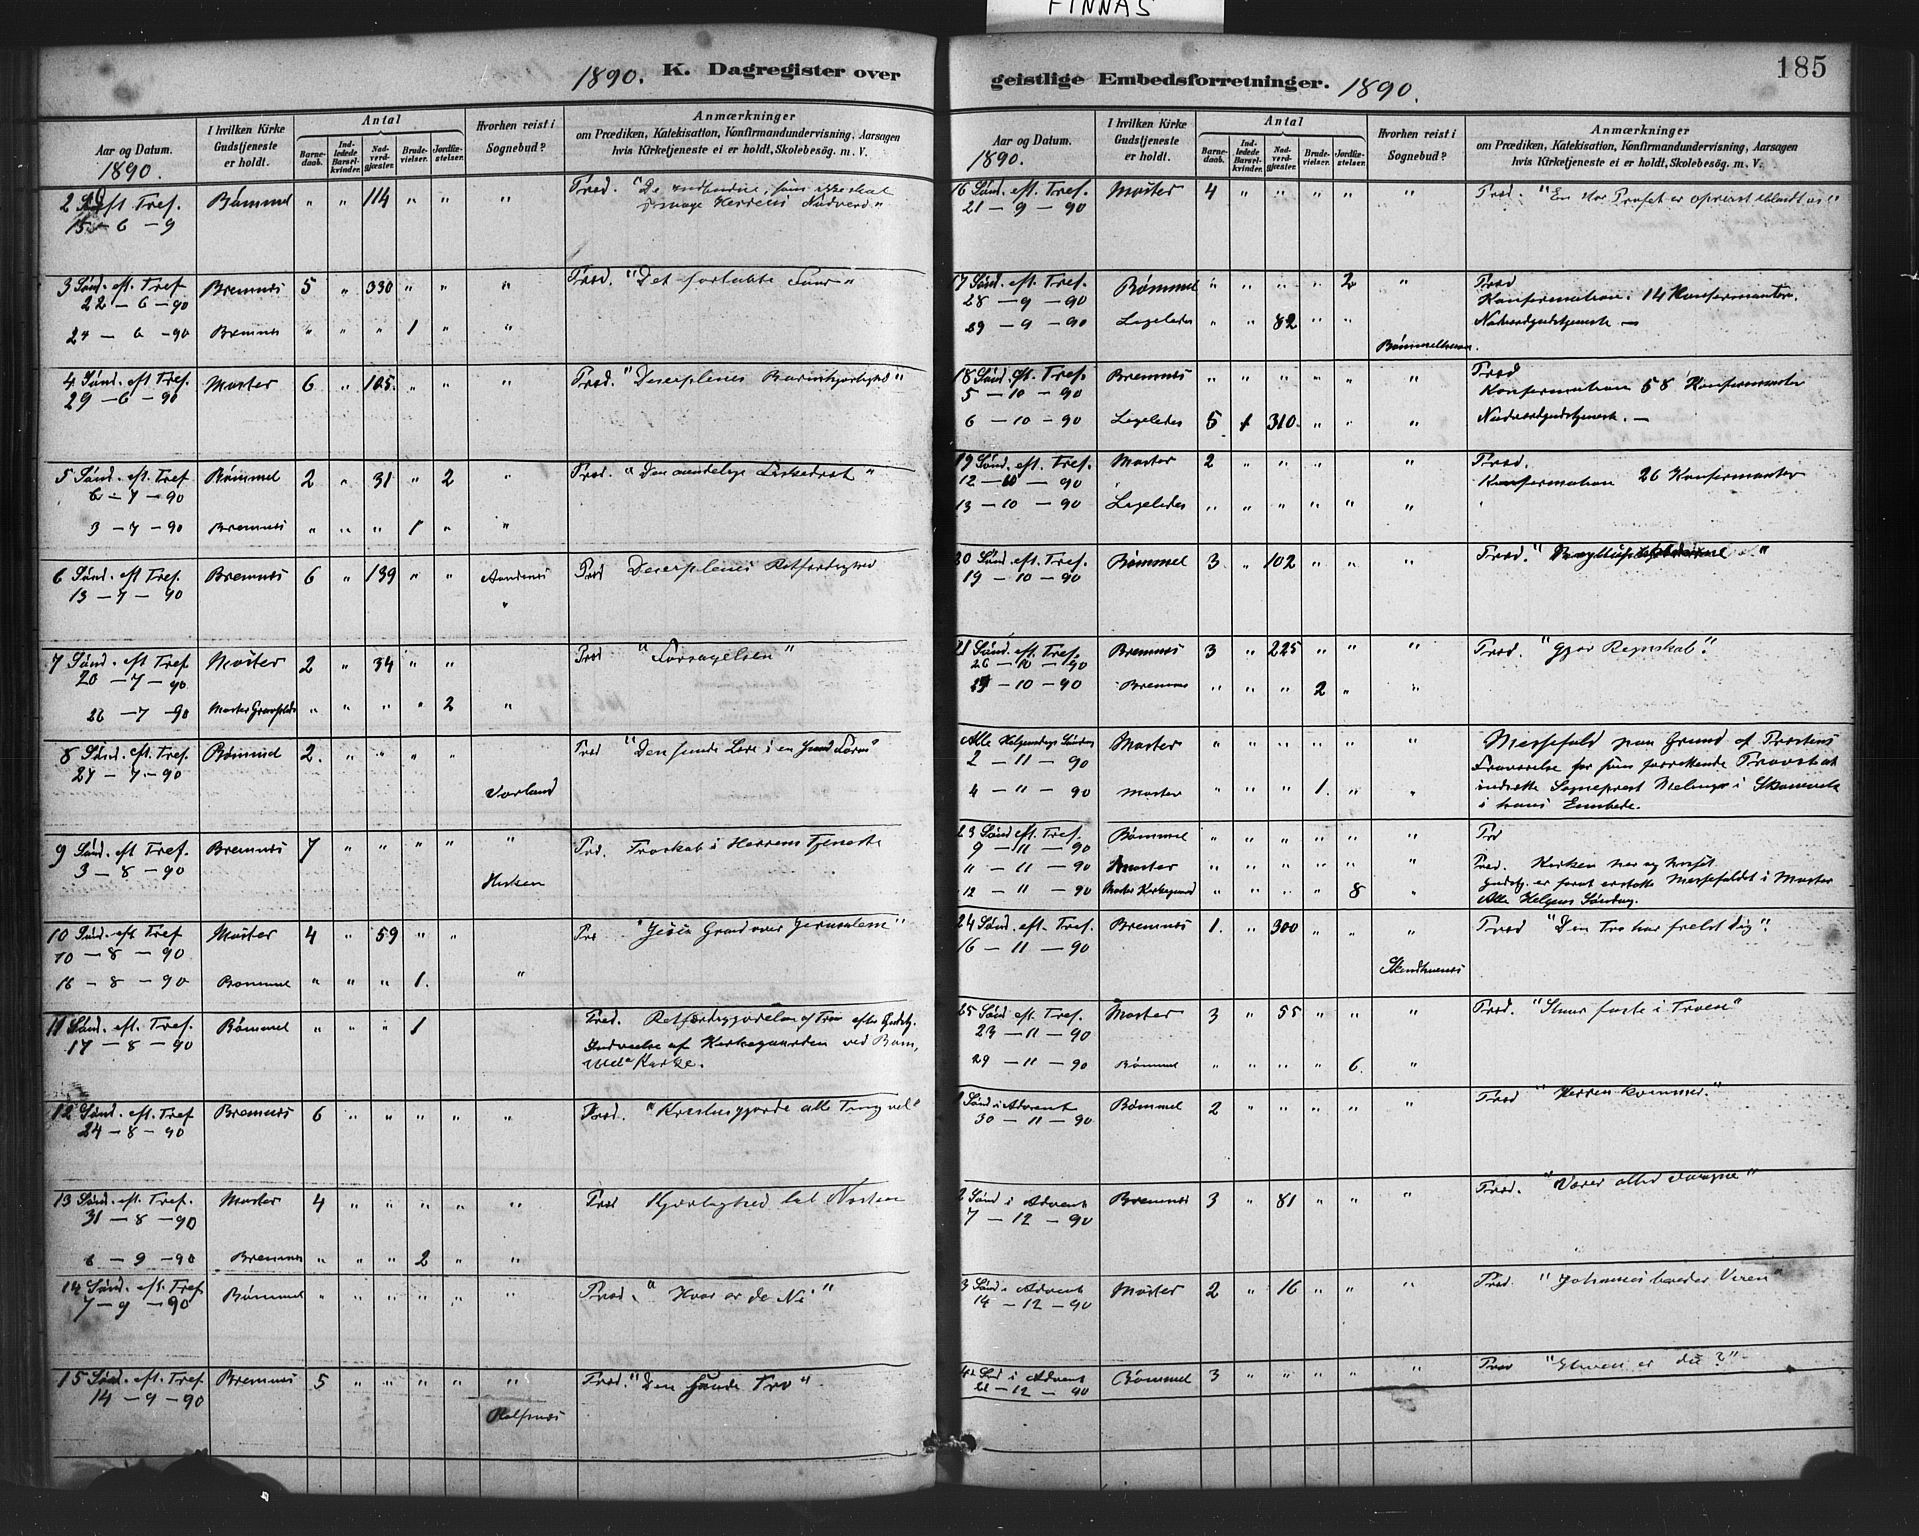 FINNÅS
185
1890. K. Dagregister over
Aar og Datum. 1890.
I hvilken Kirke Gudstjeneste er holdt.
Antal
Barnedaab.
Indledede Barselkvinder.
Nadverdgjæster.
Brudevielser.
Jordfæstelser.
Hvorhen reist i Sognebud?
Anmærkninger
om Prædiken, Katekisation, Konfirmandundervisning, Aarsagen
hvis Kirketjeneste ei er holdt, Skolebesøg. m. V.
2 S. eft Tref. Bømmel " " 114 " " " Præd. "De indbudne, som ikke skal
15 – 6 – 9 smage Herrens Nadverd"
3 Sønd. eft. Tref Bremnes 5 " 330 " " " Præd. "Det fortabte Faar"
22 – 6 – 90
24 – 6 – 90 Bremnes " " " 1 " "
4 Sønd. eft Tref. Moster 6 " 105 " " " Præd. "Disciplenes Barmhjertighed"
29 – 6 – 90
5 Sønd. eft Tref Bømmel 2 " 31 " 2 " Præd. "Den aandelige Fiskedræt"
6 – 7 – 90
3 – 7 – 90 Bremnes " " " 1 " "
6 Sønd. eft Tref. Bremnes 6 " 139 " " Præd Disciplenes Retfærdighed
13 – 7 – 90 "
7 Sønd. eft Tref Moster 2 " 34 " " Præd "Forsagelsen"
20 – 7 – 90
26 – 7 – 90 Moster " " " " 2 "
8 Sønd. eft. Tref. Bømmel 2. " " " " Præd "Den sunde Lære i en sund Form"
27 – 7 – 90
Vorland
9 Sønd. eft Tref. Bremnes 7 " " " " " Præd. Troskab i Herrens Tjeneste
3 – 8 – 90
10 Sønd. eft Tref Moster 4 " 59 " " Præ "Jesu Graad over Jerusalem"
10 – 8 – 90
16 – 8 – 90 Bømmel " " " 1. "
11 Sønd. eft. Tref. Bømmel " " " 1 Præd. Retfærdiggjørelse af Tro efter Gudstj.
17 – 8 – 90 Indvielse af Kirkegaarden ved Bøm,
mel Kirke.
12 Sønd. eft. Tref Bremnes 6 " " " " " Præd. "Kristus gjorde alle Ting vel"
24 – 8 – 90
13 Sønd. eft. Tref. Moster 4 " " " " " Præd Kjærlighed til Næsten
31 – 8 – 90
– 9 – 90 Bremnes " " " 2 " "
14 Sønd. eft. Tref Bømmel " " " " " " Præd. "Hvor er de Ni"
7 – 9 – 90
15 Sønd. eft. Tref Bremnes 5 " " " " " Præd. "Den sande Tro"
14 – 9 – 90
geistlige Embedsforretninger. 1890.
Aar og Datum. 1890.
I hvilken Kirke Gudstjeneste er holdt.
Antal
Barnedaab.
Indledede Barselkvinder.
Nadverdgjæster.
Brudevielser.
Jordfæstelser.
Hvorhen reist i Sognebud?
Anmærkninger
om Prædiken, Katekisation, Konfirmandundervisning, Aarsagen
hvis Kirketjeneste ei er holdt, Skolebesøg. m. V.
16 Sønd. eft. Tref. Moster 4 " " " " " Præd. "En stor Profet er opreist iblandt os"
21 – 9 – 90
17 Sønd. eft. Tref. Bømmel " " " " 2 " Præd
28 – 9 – 90 Konfirmation. 14 Konfirmanter.
29 – 9 – 90 Ligeledes " " 82 " " Nadverdgudstjeneste –
18 Sønd. eft. Tref. Bremnes " " " " " " Præd
5 – 10 – 90 Konfirmation 58 Konfirmanter
6 – 10 – 90 Ligeledes 5. 1 310. " " " Nadverdgudstjeneste. –
19 Sønd. eft. Tref. Moster 2 " " " " Præd.
12 – 10 – 90 Konfirmation 26 Konfirmanter
13 – 10 – 90 Ligeledes " " " " " "
20 Sønd. eft. Tref. Bømmel 3 " 102 " " " Præd.
19 – 10 – 90
21 Sønd. eft. Tref. Bremnes 3 " 225 " " " Præd. "Gjør Regnskab".
26 – 10 – 90
– 10 – 90 Bremnes " " " 2 " "
Alle Helgensdags Søndag Moster " " " " " " Messefald paa Grund af Provstens
2 – 11 – 90 Fraværelse for som
4 – 11 – 90 Moster " " " 1. " " indsætte Sogneprest i
i hans Embede.
23 Sønd eft. Tref. Bømmel " " " " " " Præ
9 – 11 – 90
11 – 11 – 90 Moster " " " " " " Præd.
12 – 11 – 90 Moster Kirkegaard " " " " 8 " Gudstj. er for at erstatte Messefaldet i Moster
Alle Helgens Søndag.
24 Sønd. eft. Tref. Bremnes 1. " 300 " " " Præd "Din Tro har frelst dig".
16 – 11 – 90
25 Sønd eft. Tref. Moster 3 " 55 " " " Præd. "Staar faste i Troen"
23 – 11 – 90
29 – 11 – 90 Bømmel " " " " 6. "
1 Sønd i Advent Bømmel 2 " " " " " Præd "Herren kommer."
30 – 11 – 90
2 Sønd i Advent Bremnes 3 " 81 " " " Præd. "Værer altid aarvaagne"
7 – 12 – 90
3 Sønd i Advent Moster 2 " 16 " " " Præd. "Johannes bereder Veien"
14 – 12 – 90
4de Sønd i Advent Bømmel 3 " " " " " Præd "Hvem er du?"
21 – 12 – 90